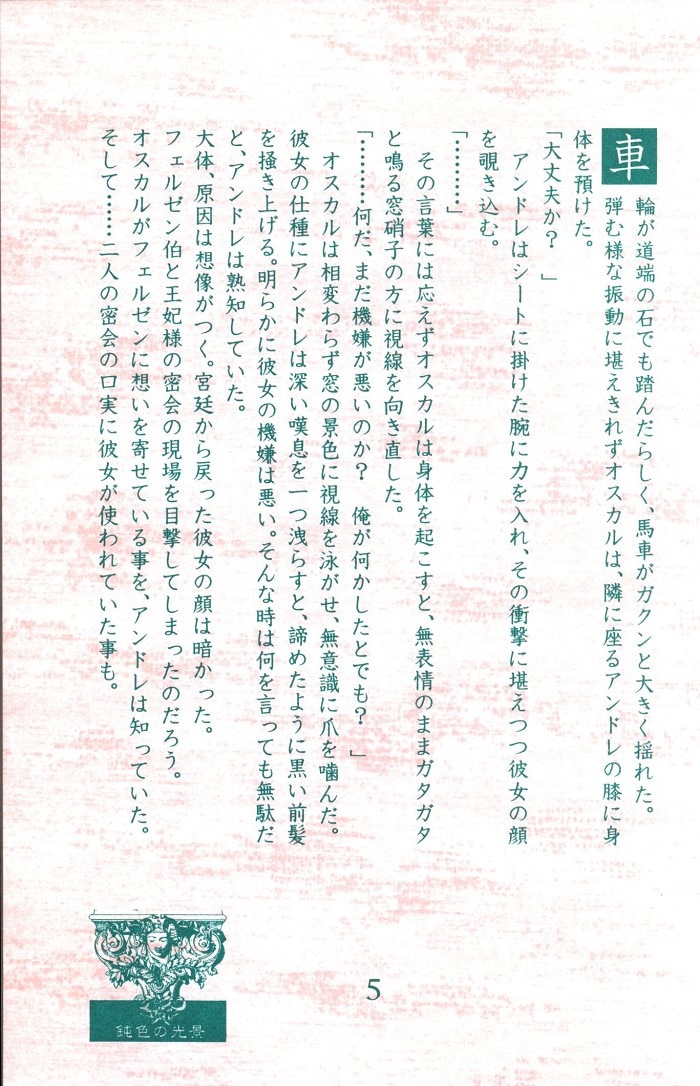 車輪が道端の石でも踏んだらしく、馬車がガクンと大きく揺れた。
弾む様な振動に堪えきれずオスカルは、隣に座るアンドレの膝に身
体を預けた。
「大丈夫か？　」
アンドレはシートに掛けた腕に力を入れ、その衝撃に堪えつつ彼女の顔
を覗き込む。
「………」
その言葉には応えずオスカルは身体を起こすと、無表情のままガタガタ
と鳴る窓硝子の方に視線を向き直した。
「………何だ、まだ機嫌が悪いのか？　俺が何かしたとでも？　」
オスカルは相変わらず窓の景色に視線を泳がせ、無意識に爪を噛んだ。
彼女の仕種にアンドレは深い嘆息を一つ洩らすと、諦めたように黒い前髪
を掻き上げる。明らかに彼女の機嫌は悪い。そんな時は何を言っても無駄だ
と、アンドレは熟知していた。
大体、原因は想像がつく。宮廷から戻った彼女の顔は暗かった。
フェルゼン伯と王妃様の密会の現場を目撃してしまったのだろう。
オスカルがフェルゼンに想いを寄せている事を、アンドレは知っていた。
そして……二人の密会の口実に彼女が使われていた事も。
5
鈍色の光景